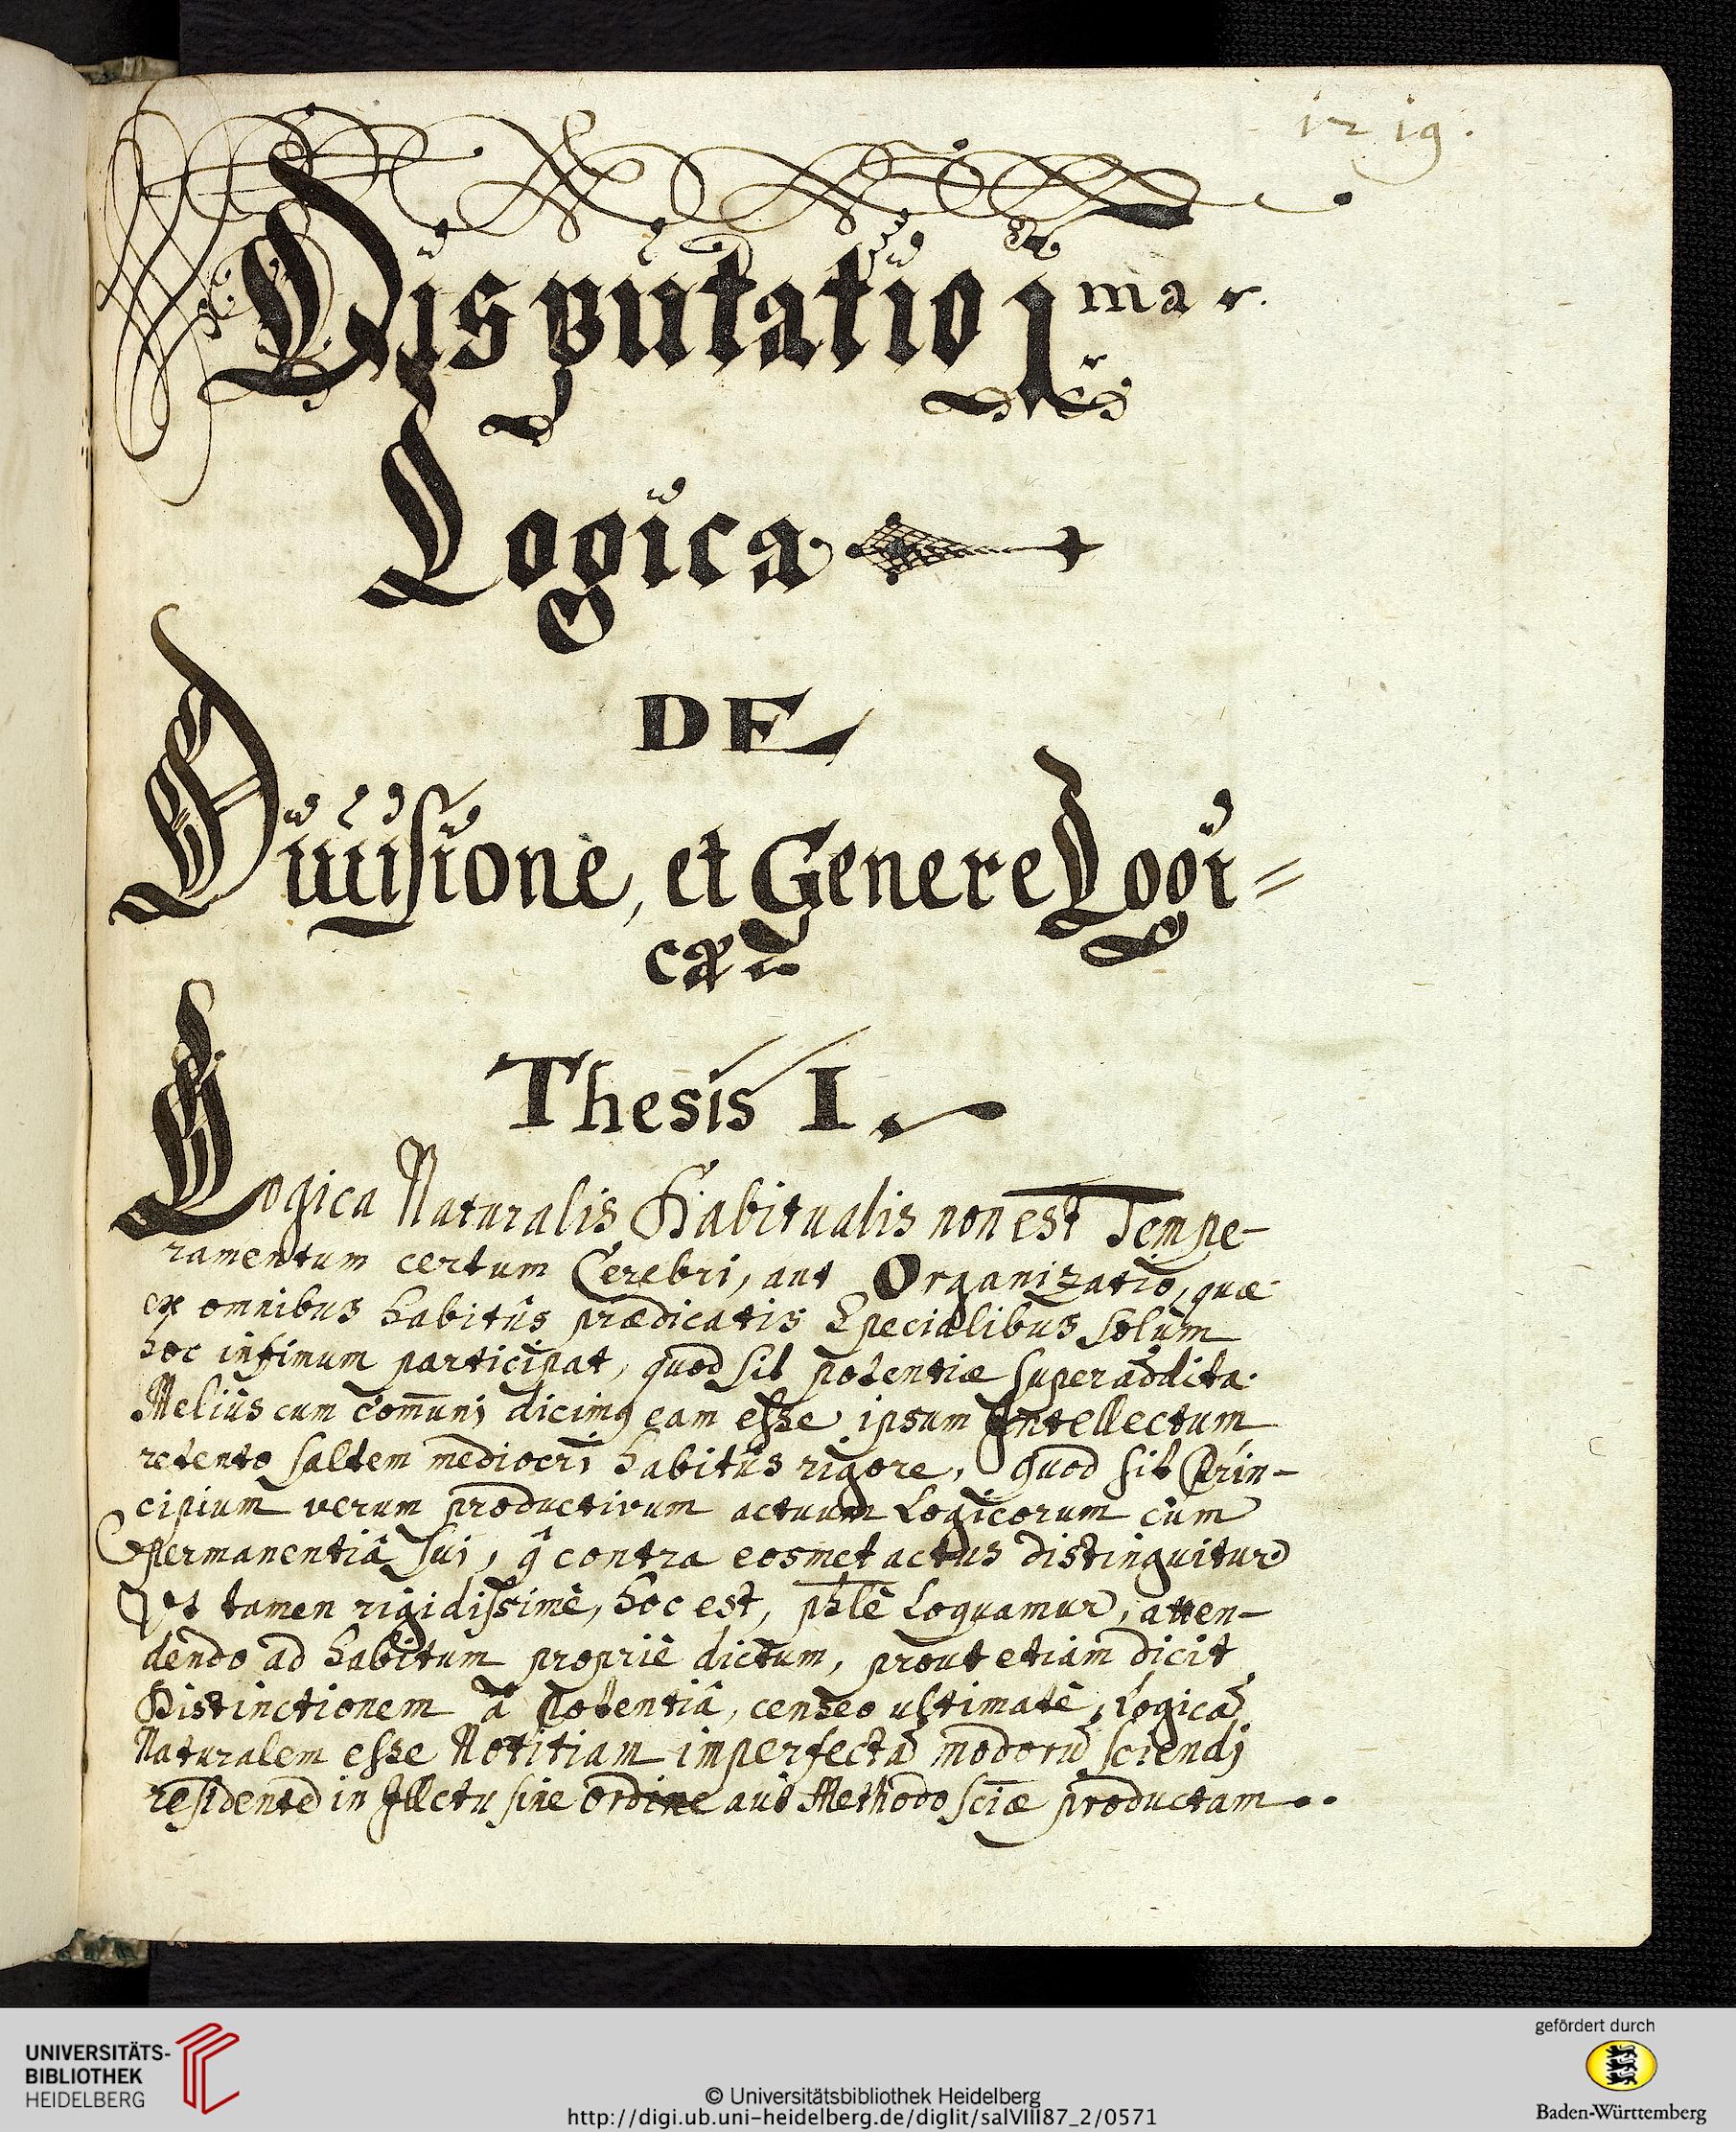 1219.
Disputatio 1ma
Logica
DE
Diuisione, et Genere Logi=
cæ
Thesis I.
Logica Naturalis Habitualis non est Tempe-
ramentum certum Cerebri, aut Organizatio, quæ
ex omnibus habitûs prædicatis Specialibus solùm
hoc infimum participat, quod sit potentiæ superaddita.
Meliùs cum com̄uni dicimꝰ eam esse ipsum Intellectum
retento saltem mediocri habitûs rigore, quod sit Prin-
cipium verum productivum actuum Logicorum cùm
Permanentiâ sui, q̂ contra eosmet actus distinguitur
Vt tamen rigidissimè, hoc est, phlè loquamur, atten-
dendo ad habitum propriè dictum, prout etiam dicit
Distinctionem â Potentiâ, censeo ultimatè, Logicā
Naturalem esse Notitiam imperfectā modorū sciendi
residentē in Illctu sine ordine aut Methodo sciæ productam..
UNIVERSITÄTS-
BIBLIOTHEK
HEIDELBERG
© Universitätsbibliothek Heidelberg
http://digi.ub.uni-heidelberg.de/diglit/salVIII87_2/0571
gefördert durch
Baden-Württemberg